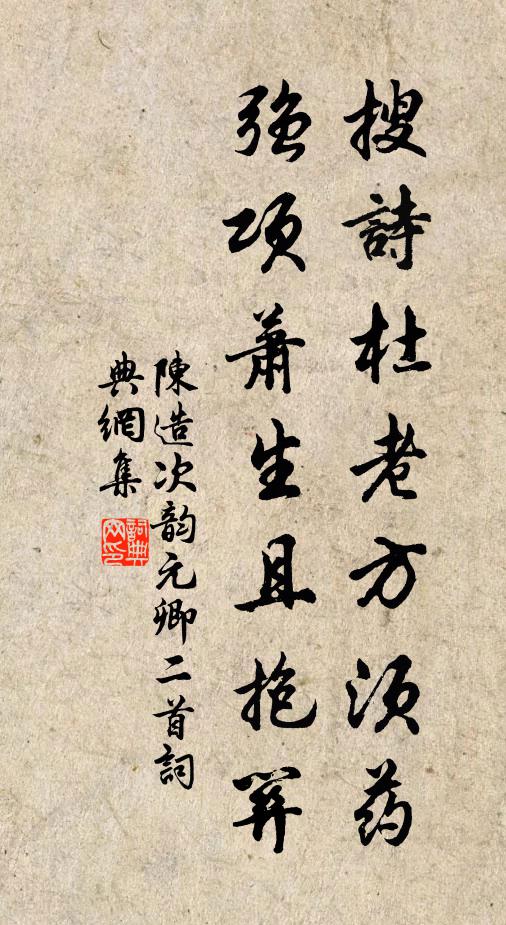 搜詩杜老方須药
強項蕭生且抱關
陳造次韵元卿二首詞
典網集
詞典网印